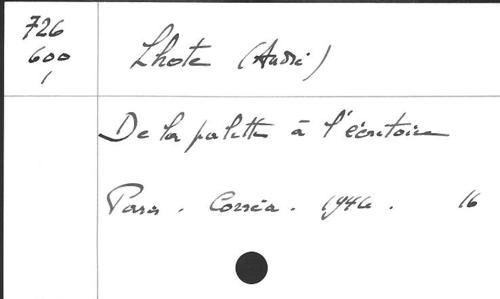 726
600
1
Lhote (André)
De la palette à l'écritoire
Paris. Corrêa. 1946. 16